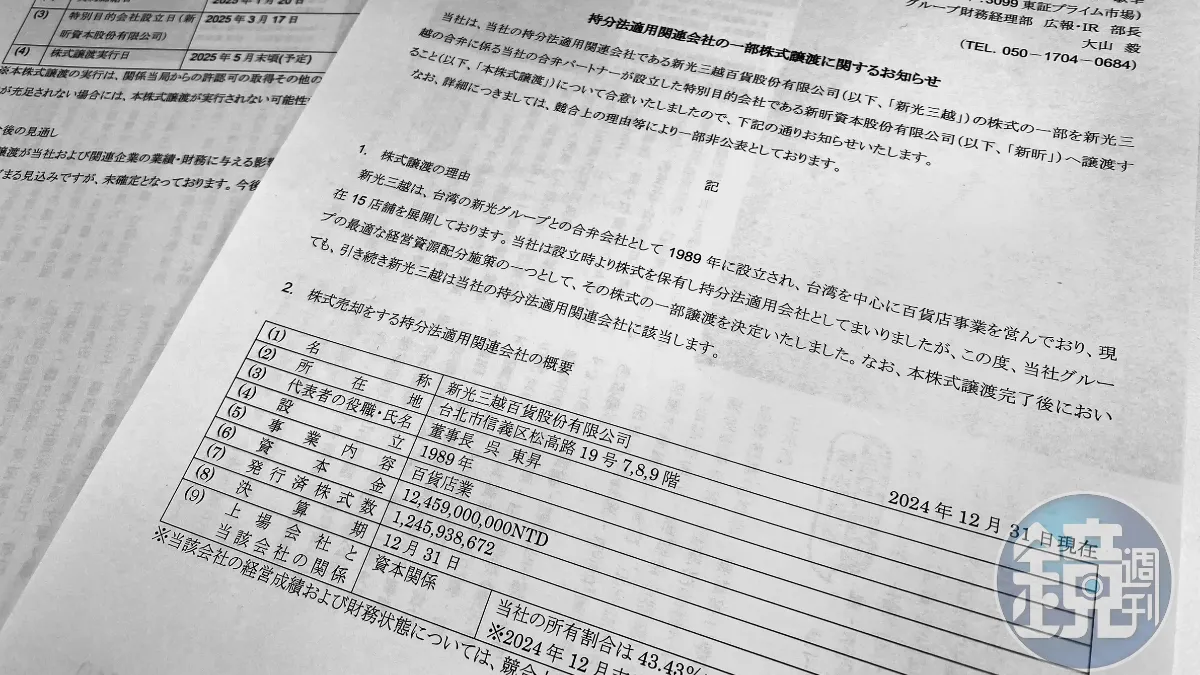 (3) 特別目的会社設立日(新
昕資本股份有限公司)
2025年3月17日
(4) 株式譲渡実行日
2025年5月末頃(予定)
※本株式譲渡の実行は、関係当局からの許認可の取得その他の
が充足されない場合には、本株式譲渡が実行されない可能性
後の見通し
譲渡が当社および関連企業の業績・財務に与える影響
まる見込みですが、未確定となっております。今後
:3099 東証プライム市場)
グループ財務経理部 広報・IR 部長
大山 毅
(TEL. 050-1704-0684)
持分法適用関連会社の一部株式譲渡に関するお知らせ
当社は、当社の持分法適用関連会社である新光三越百貨股份有限公司(以下、「新光三越」)の株式の一部を新光三
越の合弁に係る当社の合弁パートナーが設立した特別目的会社である新昕資本股份有限公司(以下、「新昕」)へ譲渡す
ること(以下、「本株式譲渡」)について合意いたしましたので、下記の通りお知らせいたします。
なお、詳細につきましては、競合上の理由等により一部非公表としております。
記
1. 株式譲渡の理由
新光三越は、台湾の新光グループとの合弁会社として 1989 年に設立され、台湾を中心に百貨店事業を営んでおり、現
在 15 店舗を展開しております。当社は設立時より株式を保有し持分法適用会社としてまいりましたが、この度、当社グルー
プの最適な経営資源配分施策の一つとして、その株式の一部譲渡を決定いたしました。なお、本株式譲渡完了後におい
ても、引き続き新光三越は当社の持分法適用関連会社に該当します。
2. 株式売却をする持分法適用関連会社の概要
2024 年 12 月 31 日現在
(1) 名称 新光三越百貨股份有限公司
(2) 所在地 台北市信義区松高路 19 号 7,8,9 階
(3) 代表者の役職・氏名 董事長 呉 東昇
(4) 設立 1989 年
(5) 事業内容 百貨店業
(6) 資本金 12,459,000,000NTD
(7) 発行済株式数 1,245,938,672
(8) 決算期 12 月 31 日
(9) 上場会社と
当該会社の関係
資本関係
当社の所有割合は 43.43%
※2024 年 12 月
※当該会社の経営成績および財務状態については、競合
鏡週刊